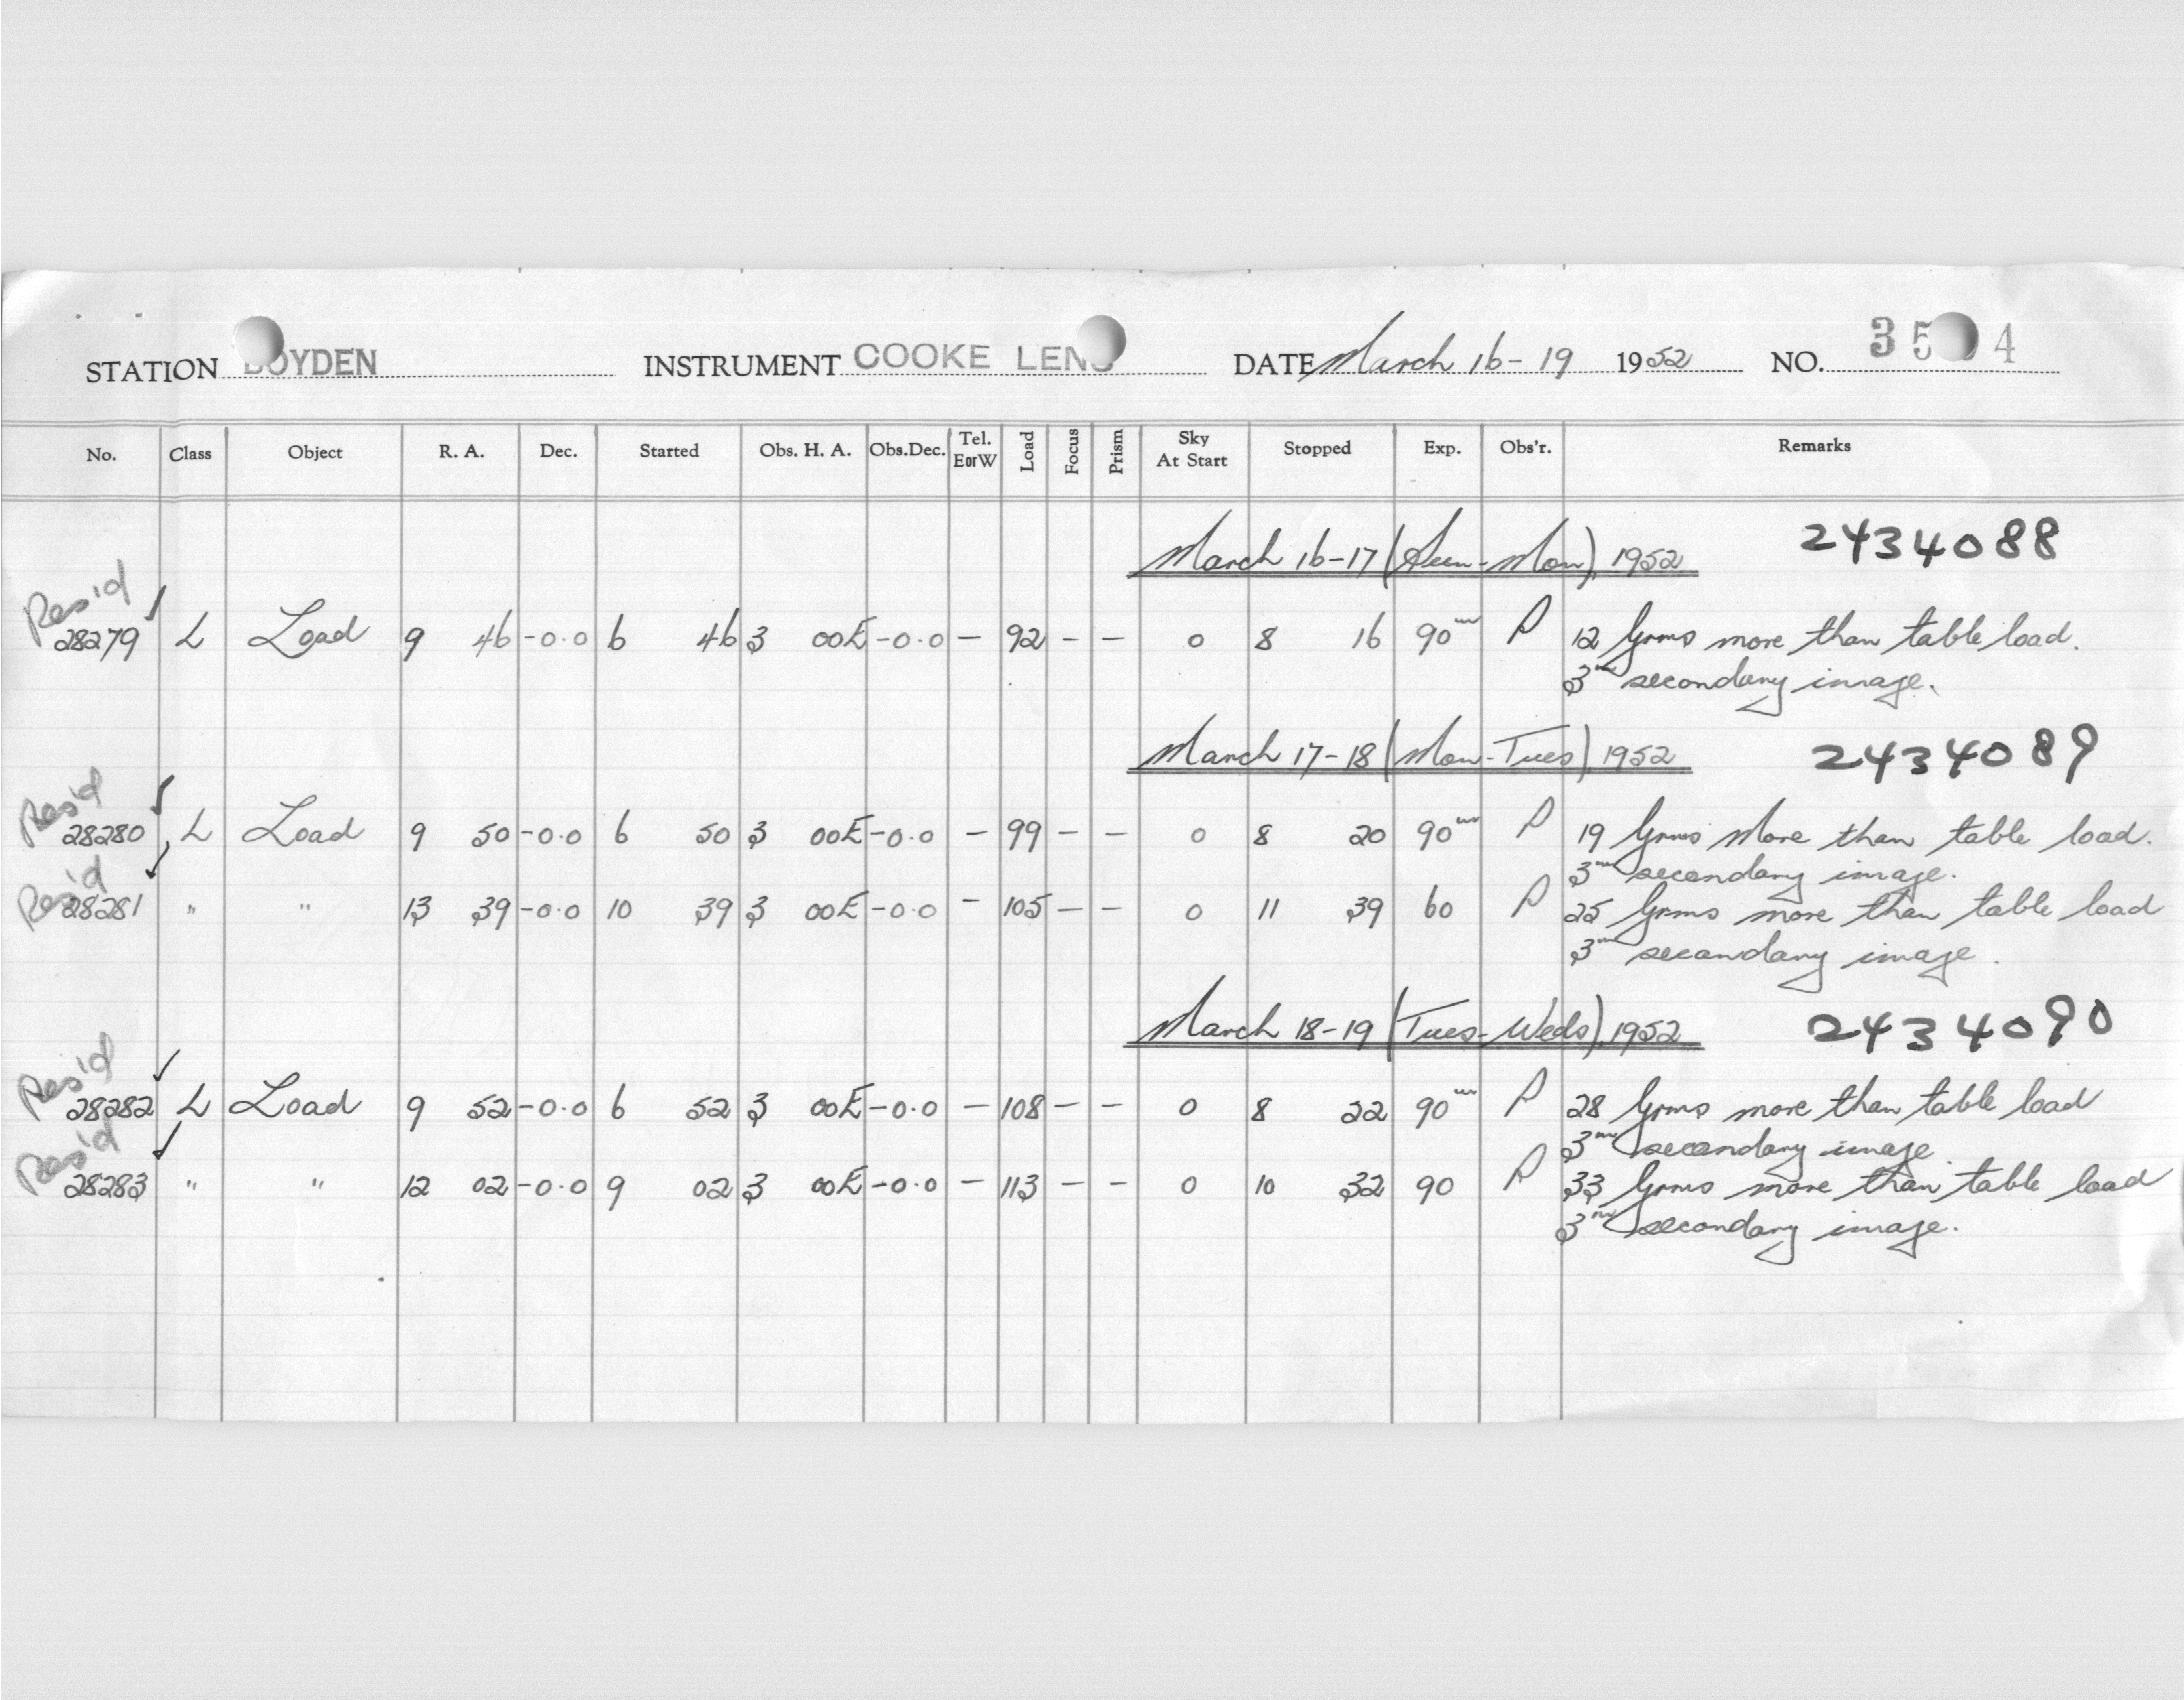 STATION BOYDEN INSTRUMENT COOKE LENS DATE March 16-19 1952 NO. 35 4
No. Class Object R. A. Dec. Started Obs. H. A. Obs.Dec. Tel. E or W Load Focus Prism Sky At Start Stopped Exp. Obs'r. Remarks
March 16-17 (Sun-Mon), 1952 2434088
Res'd
28279 L Load 9 46 -0.0 6 46 3 00E -0.0 — 92 — — 0 8 16 90m 12 Grms more than table load.
3m secondary image.
March 17-18 (Mon-Tues), 1952 2434089
Res'd
28280 L Load 9 50 -0.0 6 50 3 00E -0.0 — 99 — — 0 8 20 90m 19 Grms More than table load.
3m secondary image.
Res'd
28281 " " 13 39 -0.0 10 39 3 00E -0.0 — 105 — — 0 11 39 60 25 Grms more than table load
3m secondary image.
March 18-19 (Tues-Weds), 1952 2434090
Res'd
28282 L Load 9 52 -0.0 6 52 3 00E -0.0 — 108 — — 0 8 22 90m 28 Grms more than table load
3m secondary image.
Res'd
28283 " " 12 02 -0.0 9 02 3 00E -0.0 — 113 — — 0 10 32 90 33 Grms more than table load
3m secondary image.